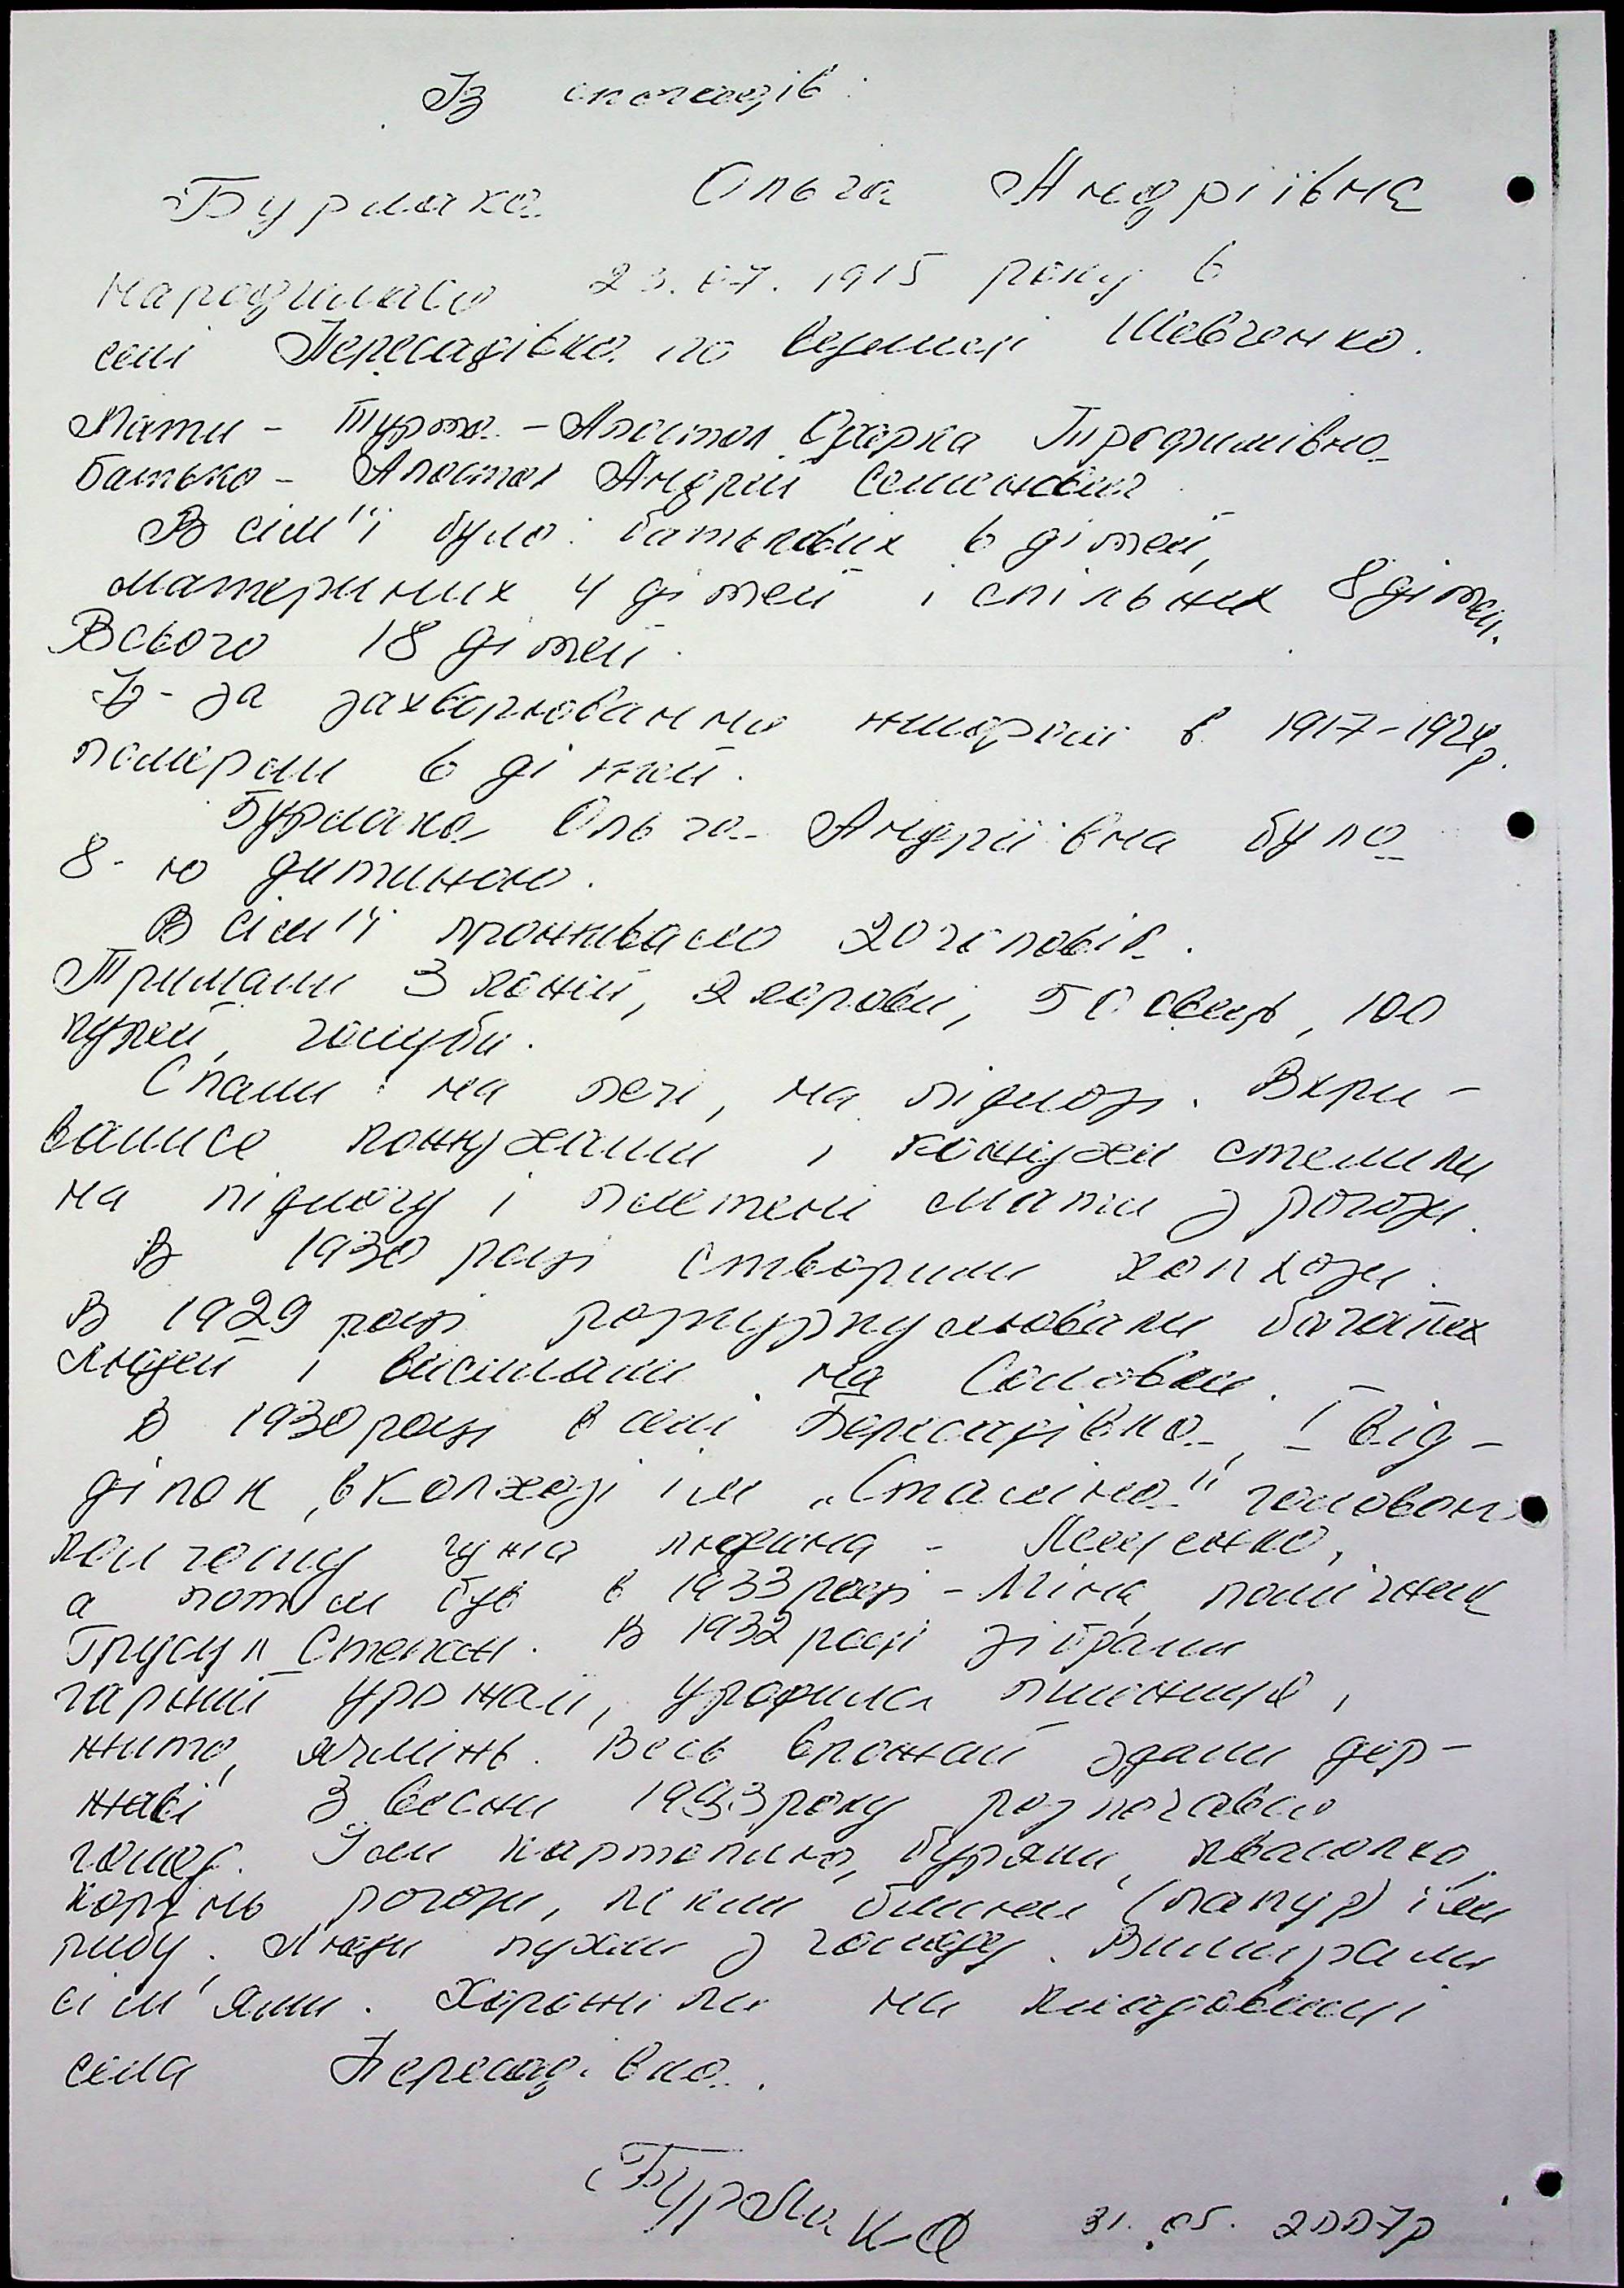 Із спогадів:
Бурлака Ольга Андріївна
народилась 23.07.1915 року в
селі Пересадівка по вулиці Шевченко.
Мати - Турта - Апостол Одарка Трофимівна
батько - Апостол Андрій Семенович.
В сім'ї було: батькових 6 дітей,
материних 4 дітей і спільних 8 дітей.
Всього 18 дітей.
Із-за захворювання в 1917-1924р.
померли 6 дітей.
Бурлака Ольга Андріївна була
8-ю дитиною.
В сім'ї проживало 20 чоловік.
Тримали 3 коней, 2 корови, 50 овець, 100
курей, голуби.
Спали: на печі, на підлозі. Вкри-
вались кожухами і кожухи стелили
на підлогу і плетені мати з рогози.
В 1930 році створили колхози.
В 1929 році розкуркулювали багатих
людей і висилали на Соловки.
В 1930 році в селі Пересадівка, I від-
ділок, в колхозі ім „Сталіна" головою
колгоспу чужа людина -
а потім був в 1933 році - Міна, помічник
Грусул Степан. В 1932 році зібрали
гарний урожай, уродила пшениця,
жито, ячмінь. Весь врожай здали дер-
жаві З весни 1933 року розпочався
голод. Їли картоплину, буряки, квасолю,
корінь рогози, пекли блини (папур) їли
рибу. Люди пухли з голоду. Вимирали
сім'ями. Хоронили на кладовищі
села Пересадівка.
Бурлака 31.05.2007р